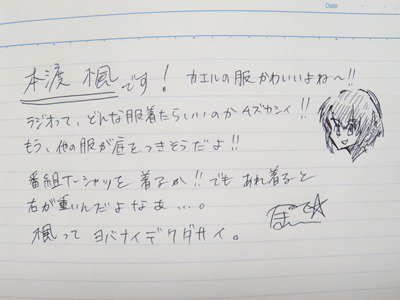 Date
本渡 楓です! カエルの服かわいいよね〜!!
ラジオって、どんな服着たらいいのかムズカシイ!!
もう、他の服が底をつきそうだよ!!
番組Tーシャツを着るか!! でもあれ着ると
右が重いんだよなあ…。
楓って ヨバナイデクダサイ。